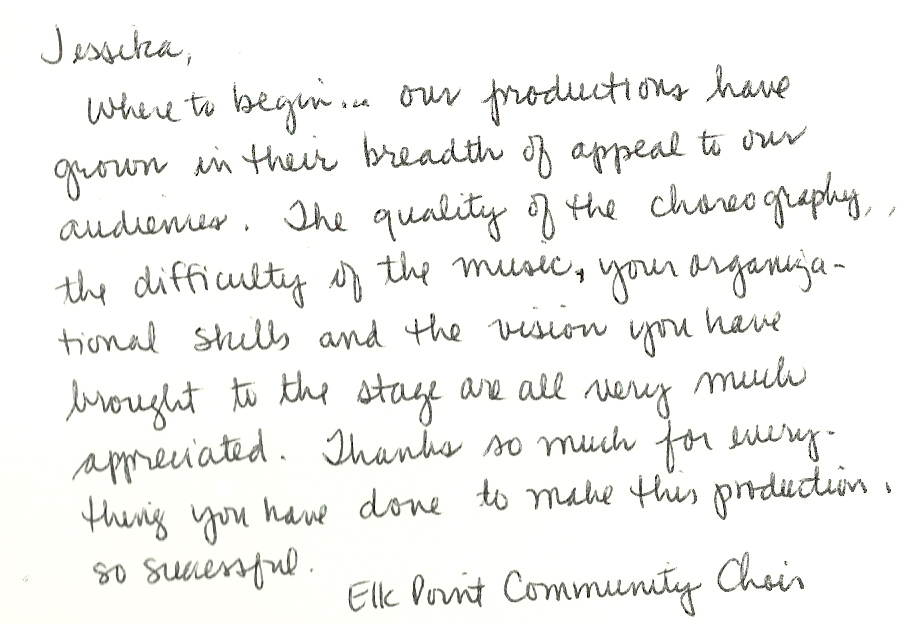 Jessika,
Where to begin... our productions have
grown in their breadth of appeal to our
audiences. The quality of the choreography,
the difficulty of the music, your organiza-
tional skills and the vision you have
brought to the stage are all very much
appreciated. Thanks so much for every-
thing you have done to make this production
so successful.
Elk Point Community Choir